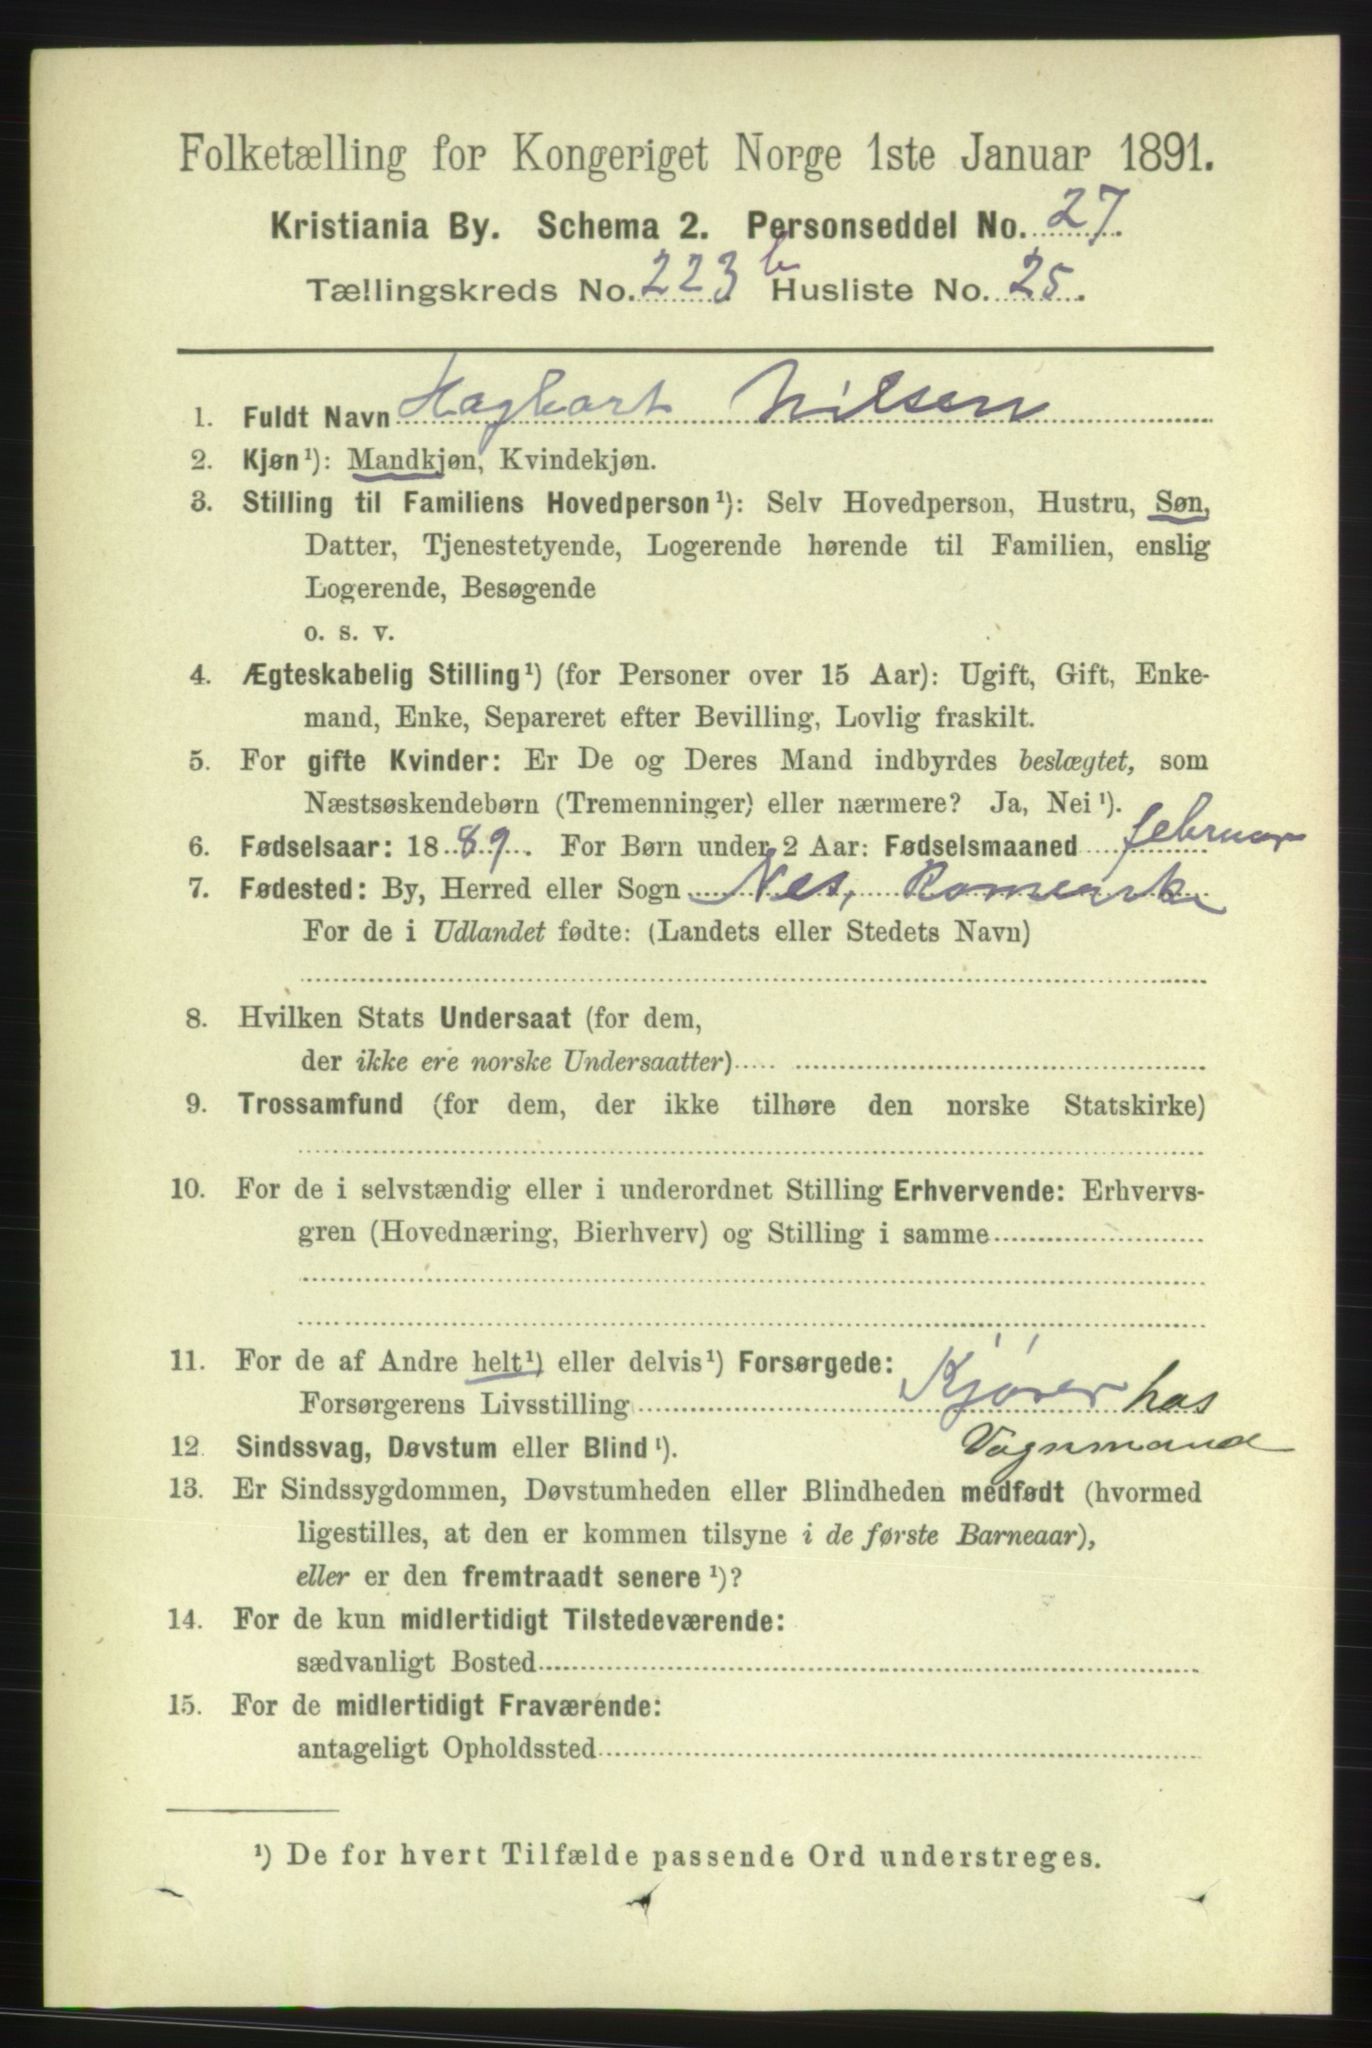 Folketælling for Kongeriget Norge 1ste Januar 1891.
Kristiania By. Schema 2. Personseddel No. 27.
Tællingskreds No. 223 b Husliste No. 25.
1. Fuldt Navn Hagbart Nilsen
2. Kjøn¹): Mandkjøn, Kvindekjøn.
3. Stilling til Familiens Hovedperson¹): Selv Hovedperson, Hustru, Søn,
Datter, Tjenestetyende, Logerende hørende til Familien, enslig
Logerende, Besøgende
o. s. v.
4. Ægteskabelig Stilling¹) (for Personer over 15 Aar): Ugift, Gift, Enke-
mand, Enke, Separeret efter Bevilling, Lovlig fraskilt.
5. For gifte Kvinder: Er De og Deres Mand indbyrdes beslægtet, som
Næstsøskendebørn (Tremenninger) eller nærmere? Ja, Nei¹).
6. Fødselsaar: 1889. For Børn under 2 Aar: Fødselsmaaned februar
7. Fødested: By, Herred eller Sogn Nes, Romerike
For de i Udlandet fødte: (Landets eller Stedets Navn)
8. Hvilken Stats Undersaat (for dem,
der ikke ere norske Undersaatter)
9. Trossamfund (for dem, der ikke tilhøre den norske Statskirke)
10. For de i selvstændig eller i underordnet Stilling Erhvervende: Erhvervs-
gren (Hovednæring, Bierhverv) og Stilling i samme
11. For de af Andre helt¹) eller delvis¹) Forsørgede:
Forsørgerens Livsstilling Kjører hos
Vognmand
12 Sindssvag, Døvstum eller Blind¹).
13. Er Sindssygdommen, Døvstumheden eller Blindheden medfødt (hvormed
ligestilles, at den er kommen tilsyne i de første Barneaar),
eller er den fremtraadt senere¹)?
14. For de kun midlertidigt Tilstedeværende:
sædvanligt Bosted
15. For de midlertidigt Fraværende:
antageligt Opholdssted
¹) De for hvert Tilfælde passende Ord understreges.